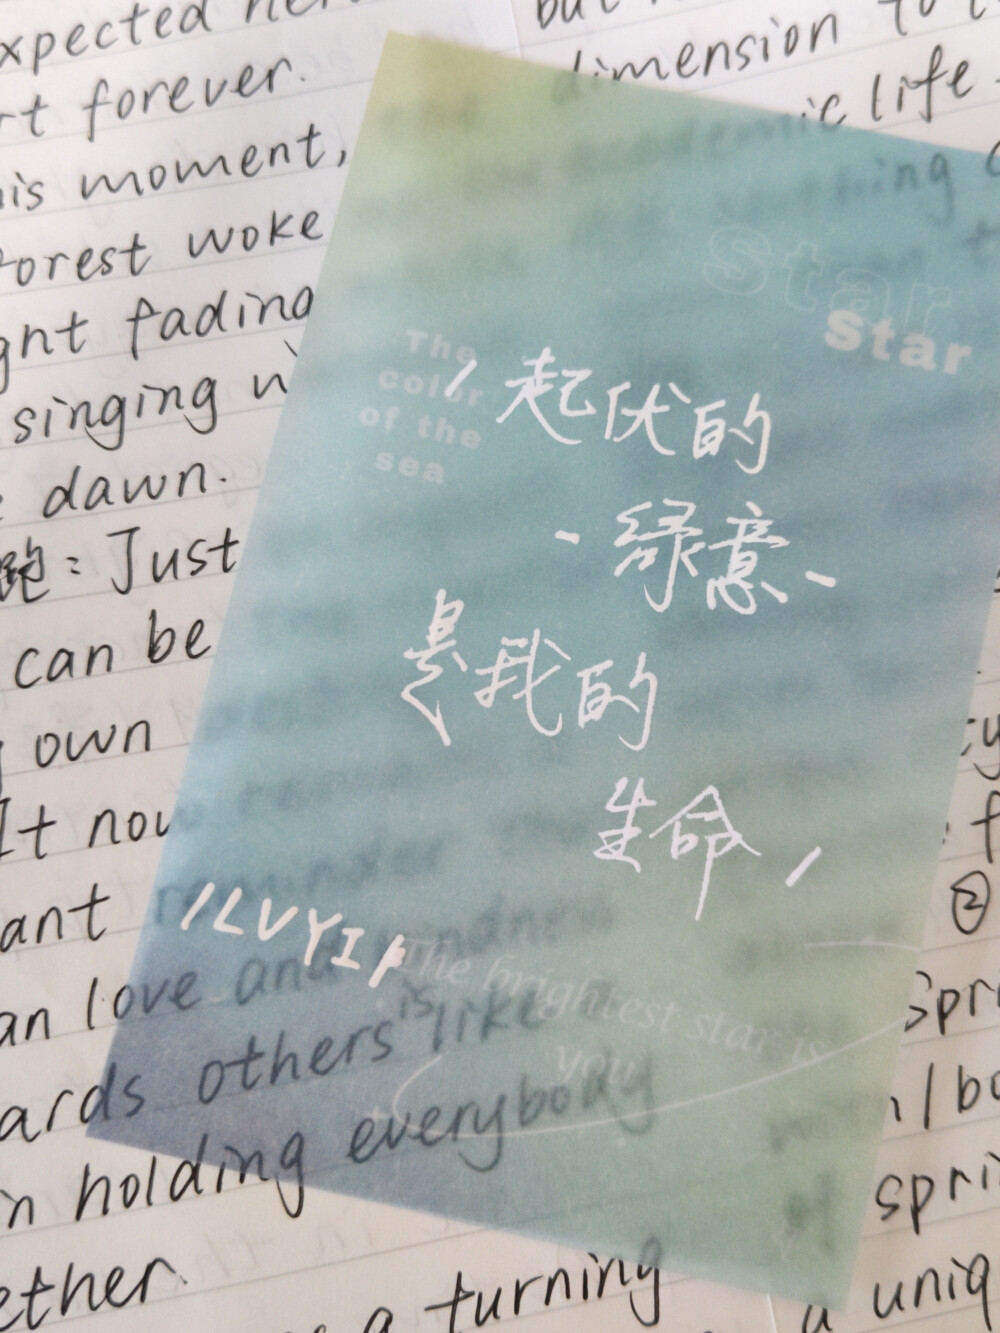 xpected her
rt forever.
is moment,
forest woke
ght fading
singing w
dawn.
跑：Just
can be
own
It now
ant reminder
an love and kindness
ards others is like
in holding everybody
ether.
a turning
but
dimension to
academic life
thing
Star
star
The
color
of the
sea
/起伏的
-绿意-
是我的
生命/
/LVYI/
The brightest star is
you
②
Spri
spri
a uniq